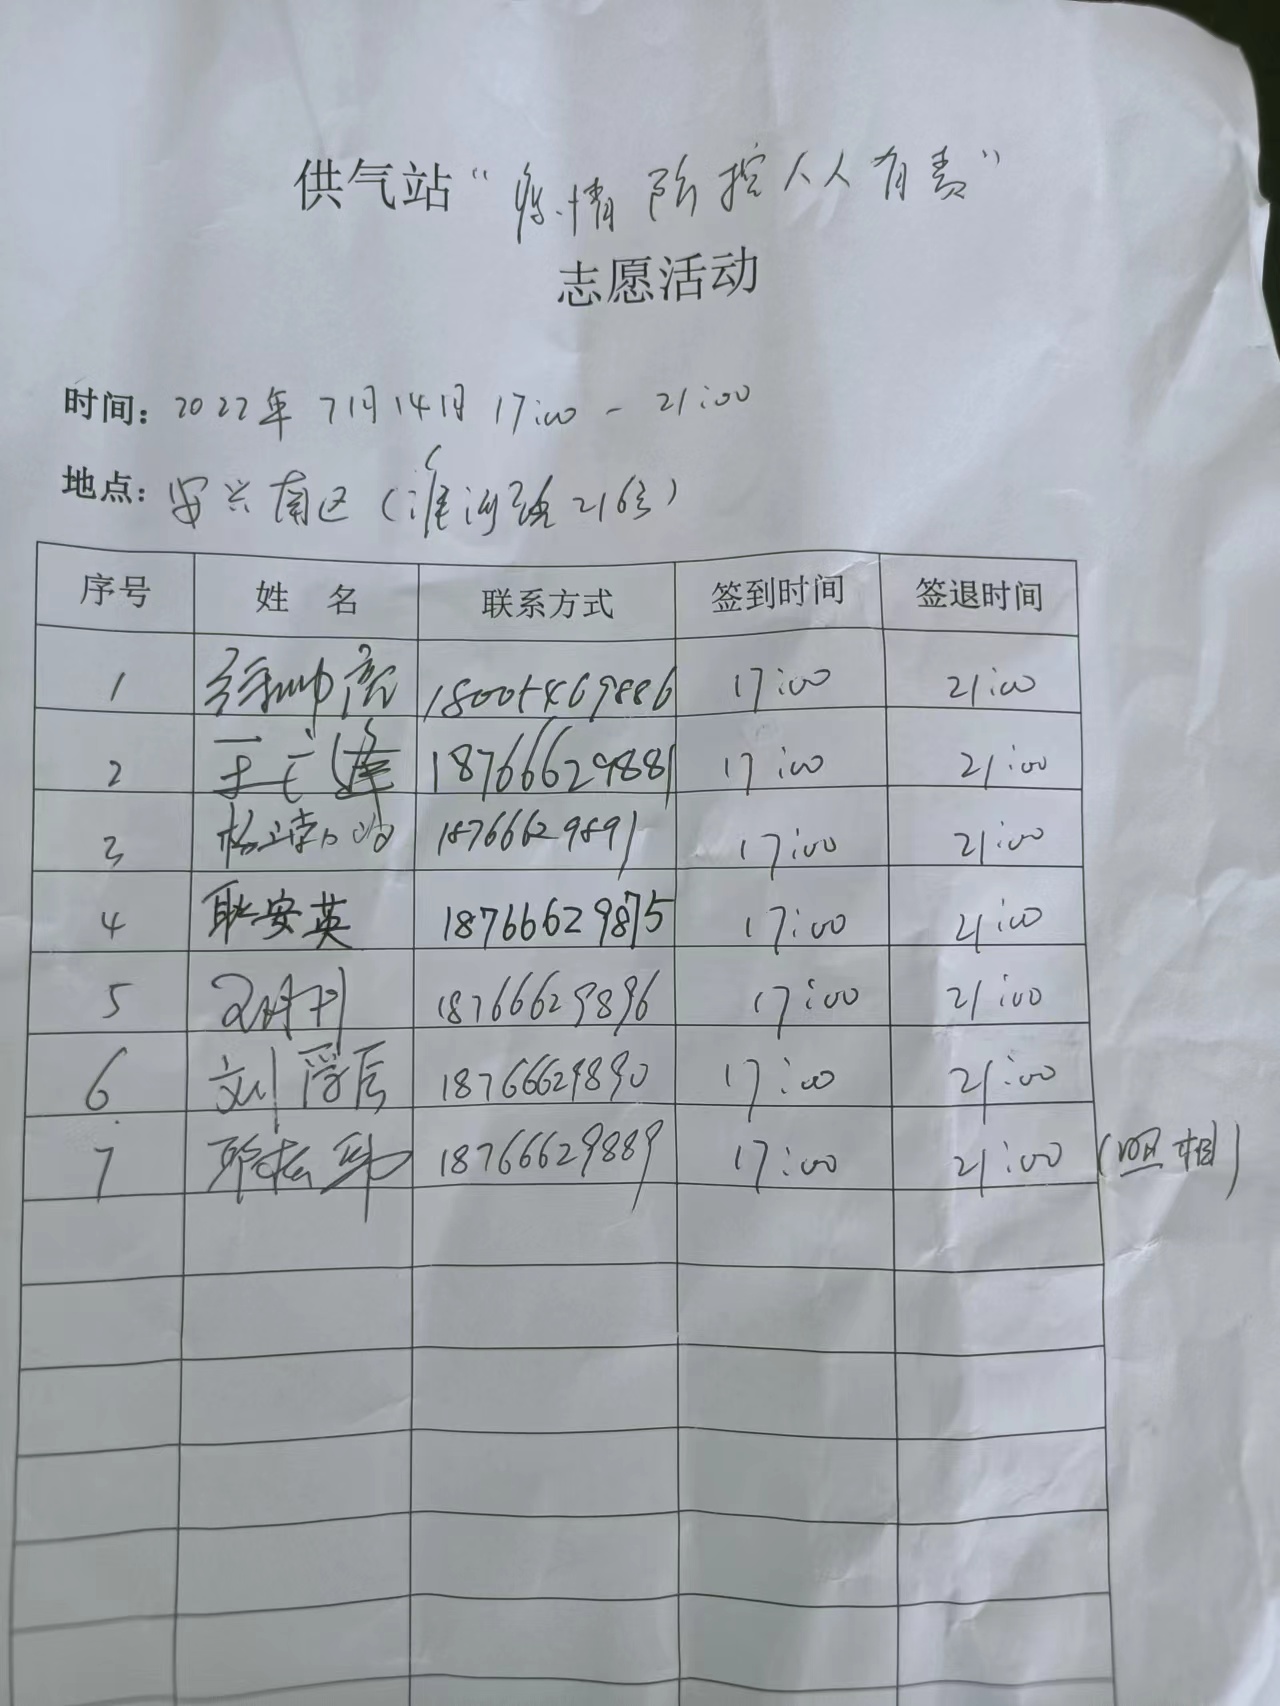 供气站“疫情防控人人有责”
志愿活动
时间：2022年7月14日 17:00 - 21:00
地点：安兴南区（淮河路216号）
序号 姓名 联系方式 签到时间 签退时间
1 徐帅亮 18005469886 17:00 21:00
2 18766629881 17:00 21:00
3 18766629891 17:00 21:00
4 耿安英 18766629875 17:00 21:00
5 18766629896 17:00 21:00
6 刘 18766629890 17:00 21:00
7 18766629889 17:00 21:00 （照相）